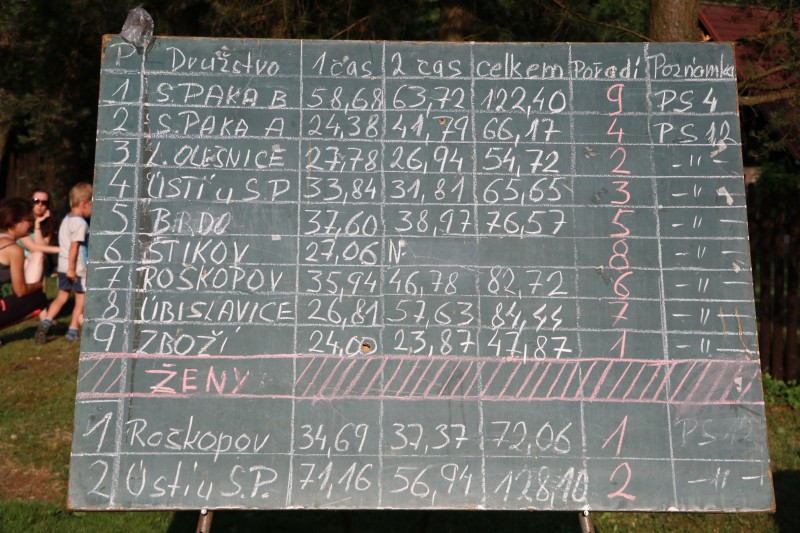 P Družstvo 1 čas 2 čas celkem Pořadí Poznámka
1 S.PAKA B 58,68 63,72 122,40 9 PS 4
2 S.PAKA A 24,38 41,79 66,17 4 PS 12
3 L.OLEŠNICE 27,78 26,94 54,72 2 -"-
4 ÚSTÍ u S.P 33,84 31,81 65,65 3 -"-
5 BRDO 37,60 38,97 76,57 5 -"-
6 STIKOV 27,06 N 8 -"-
7 ROŠKOPOV 35,94 46,78 82,72 6 -"-
8 ÚBISLAVICE 26,81 57,63 84,44 7 -"-
9 ZBOŽÍ 24,00 23,87 47,87 1 -"-
ŽENY
1 Roškopov 34,69 37,37 72,06 1 PS 12
2 Ústí u S.P. 71,16 56,94 128,10 2 -"-